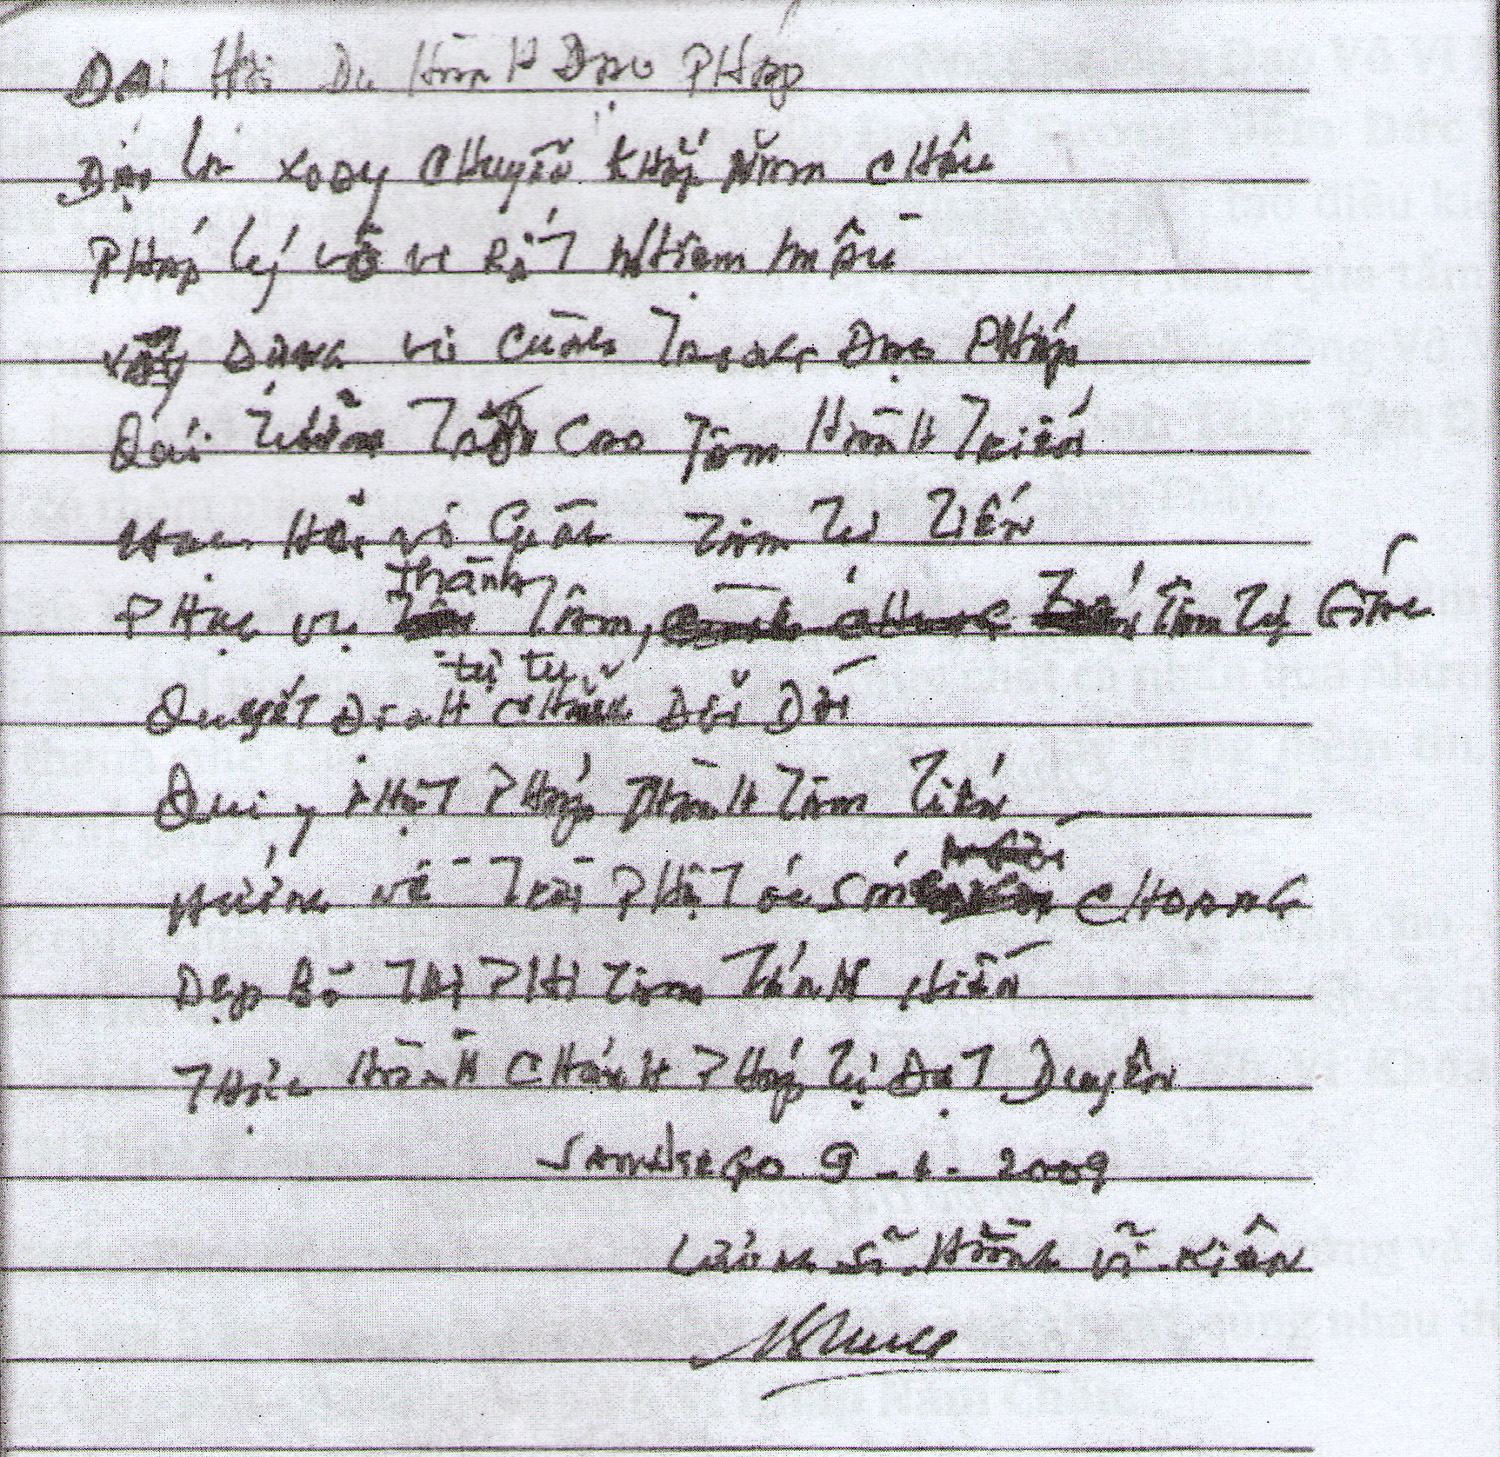 Đại Hội Du Hành Đạo Pháp
Đạo lời xoay chuyển khắp Năm Châu
Pháp lý vô vi Rất Nhiệm Mầu
xây Dựng vô cùng Trong Đạo Pháp
Tâm Hành Triển
vô Cùng Tâm Tự Tiến
Phục vụ thành Tâm, Tâm Tự Giác
Quyết Định tự tu Chẳng Đổi Dời
Qui y Phật Pháp Thành Tâm Tiến
Hướng về Trời Phật óc Sáng CHOANG
Dẹp Bỏ Thị Phi Tâm Tánh Hiền
Thực Hành Chánh Pháp Tự Đạt Duyên
SANDIEGO 9-6-2009
Lương Sĩ Hằng Vĩ Kiên